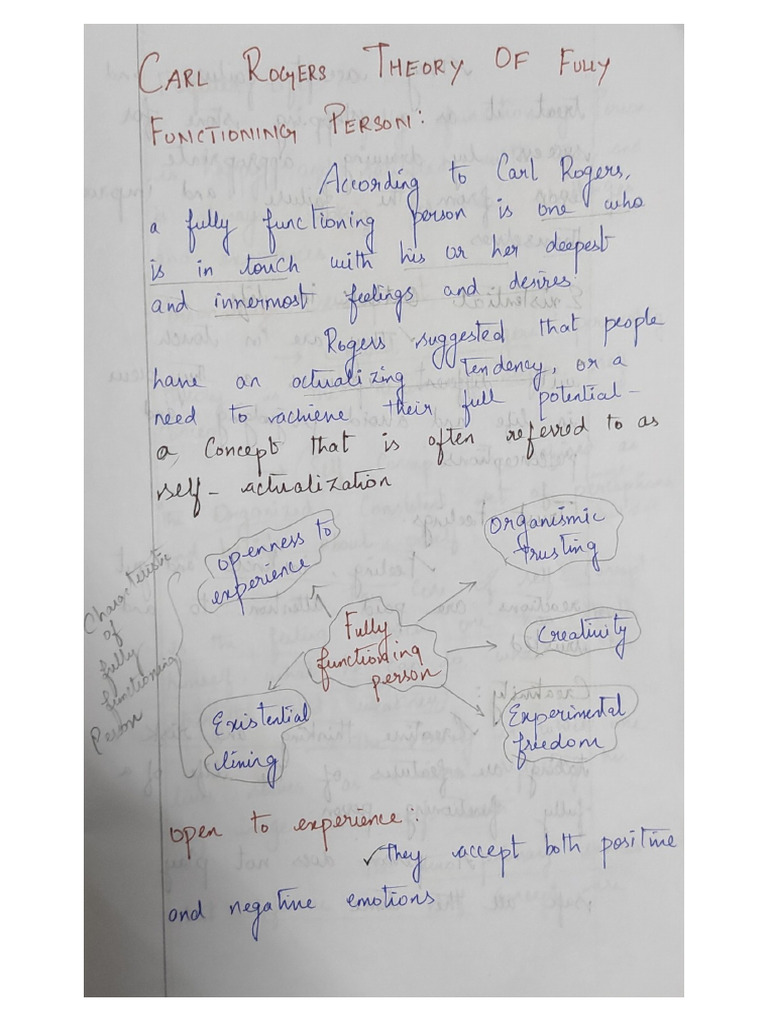 CARL ROGERS THEORY OF FULLY
FUNCTIONING PERSON:
According to Carl Rogers,
a fully functioning person is one who
is in touch with his or her deepest
and innermost feelings and desires.
Rogers suggested that people
have an actualizing tendency, or a
need to achieve their full potential -
a concept that is often referred to as
self - actualization
openness to
experience
Organismic
trusting
Characteristic
of
fully
functioning
Person
Fully
functioning
person
Creativity
Existential
living
Experimental
freedom
open to experience:
✓ They accept both positive
and negative emotions